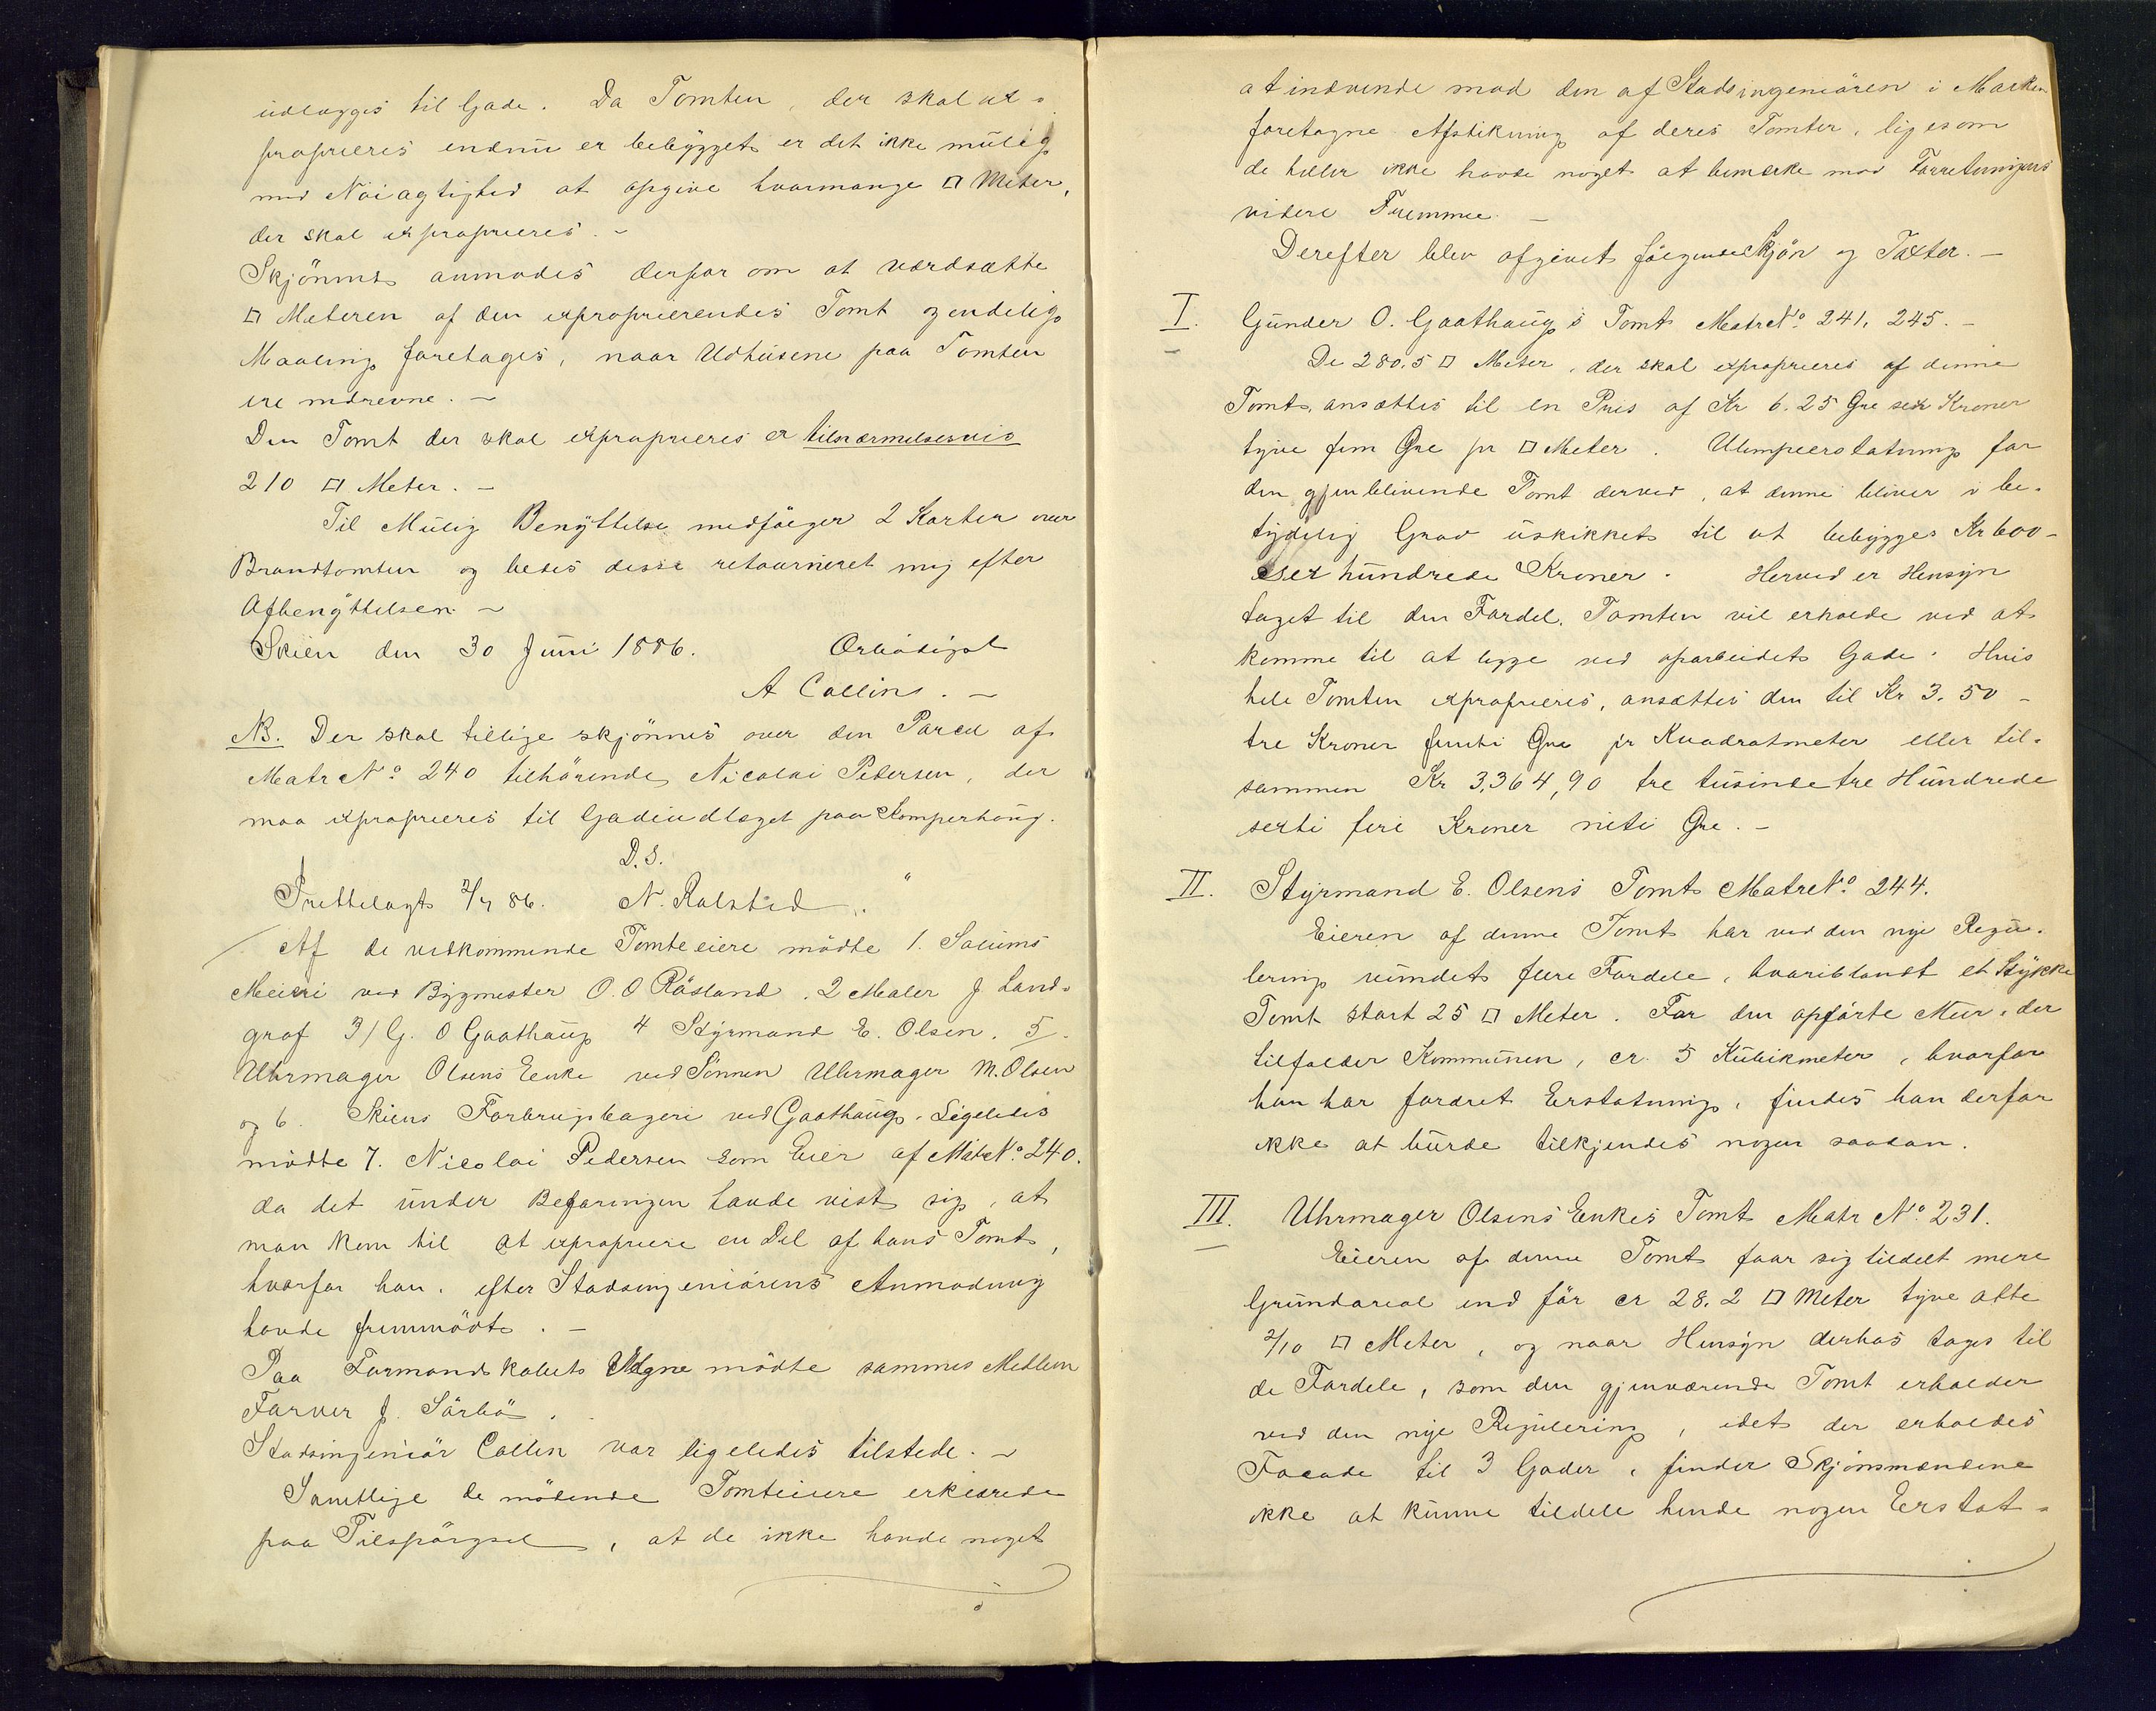 udlægges til Gade. Da Tomten, der skal ex-
proprieres endnu er bebygget er det ikke mulig
med Nöiagtighed at opgive hvormange □ Meter,
der skal exproprieres. –
Skjönnet anmodes derfor om at værdsætte
□ Meteren af den exproprierendes Tomt og endelig
Maaling foretages, naar Udhusene paa Tomten
ere nedrevne. –
Den Tomt der skal exproprieres er tilnærmelsesvis
210 □ Meter. –
Til Mulig Benyttelse medfölger 2 Karter over
Brandtomten og bedes disse retourneret mig efter
Afbenyttelsen –
Skien den 30 Juni 1886. Ærbödigst
A Collin. –
NB. Der skal tillige skjönnes over den Parcel af
Matr No 240 tilhörende Nicolai Pedersen, der
maa exproprieres til Gadeudlæget paa Komperhoug.
D.S.
Fremlagt 2/7 86. N. Rolsted.
Af de vedkommende Tomteeiere mödte 1. Solums
Meieri ved Bygmester O. O Råsland. 2 Maler J Land-
graf 3/ G. O Gaathaug 4 Styrmand E. Olsen. 5/
Uhrmager Olsens Enke ved Sönnen Uhrmager M. Olsen
og 6. Skiens Forbrugsbageri ved Gaathaug. Ligeledes
mödte 7. Nicolai Pedersen som Eier af Matr No. 240.
da det under Befaringen havde vist sig, at
man kom til at expropriere en Del af hans Tomt,
hvorfor han, efter Stadsingeniörens Anmodning
havde fremmödt. –
Paa Formandskabets Vegne mödte sammes Medlem
Farver J. Sörbö.
Stadsingeniör Collin var ligeledes tilstede. –
Samtlige de mödende Tomteeiere erklærede
paa Tilspörgsel, at de ikke havde noget
at indvende mod den af Stadsingeniören i Marken
foretagne Afstikning af deres Tomter, ligesom
de heller ikke havde noget at bemærke mod Forretningens
videre Fremme. –
Derefter blev afgivet fölgende Skjön og Taxter. –
I. Gunder O. Gaathaug's Tomt Matr No. 241, 245. –
De 280,5 □ Meter, der skal exproprieres af denne
Tomt, ansættes til en Pris af Kr 6.25 Øre sex Kroner
tyve fem Øre pr □ Meter. Ulempeerstatning for
den gjenblivende Tomt derved, at denne bliver i be-
tydelig Grad uskikket til at bebygges Kr 600 –
sex hundrede Kroner. Herved er Hensyn
taget til den Fordel, Tomten vil erholde ved at
komme til at ligge ved oparbeidet Gade. Hvis
hele Tomten exproprieres, ansættes den til Kr 3.50 –
tre Kroner femti Øre pr Kvadratmeter eller til-
sammen Kr 3,364,90 tre tusinde tre Hundrede
sexti fire Kroner niti Øre. –
II. Styrmand E. Olsens Tomt Matr No. 244.
Eieren af denne Tomt har ved den nye Regu-
lering vundet flere Fordele, hvoriblandt et Stykke
Tomt stort 25 □ Meter. For den opförte Mur, der
tilfalder Kommunen, cr. 5 Kubikmeter, hvorfor
han har fordret Erstatning, findes han derfor
ikke at burde tilkjendes nogen saadan.
III. Uhrmager Olsens Enkes Tomt Matr No. 231.
Eieren af denne Tomt faar sig tildelt mere
Grundareal end för cr 28.2 □ Meter tyve otte
2/10 □ Meter, og naar Hensyn derhos tages til
de Fordele, som den gjenværende Tomt erholder
ved den nye Regulering, idet der erholdes
Facade til 3 Gader, finder Skjönsmændene
ikke at kunne tildele hende nogen Erstat-